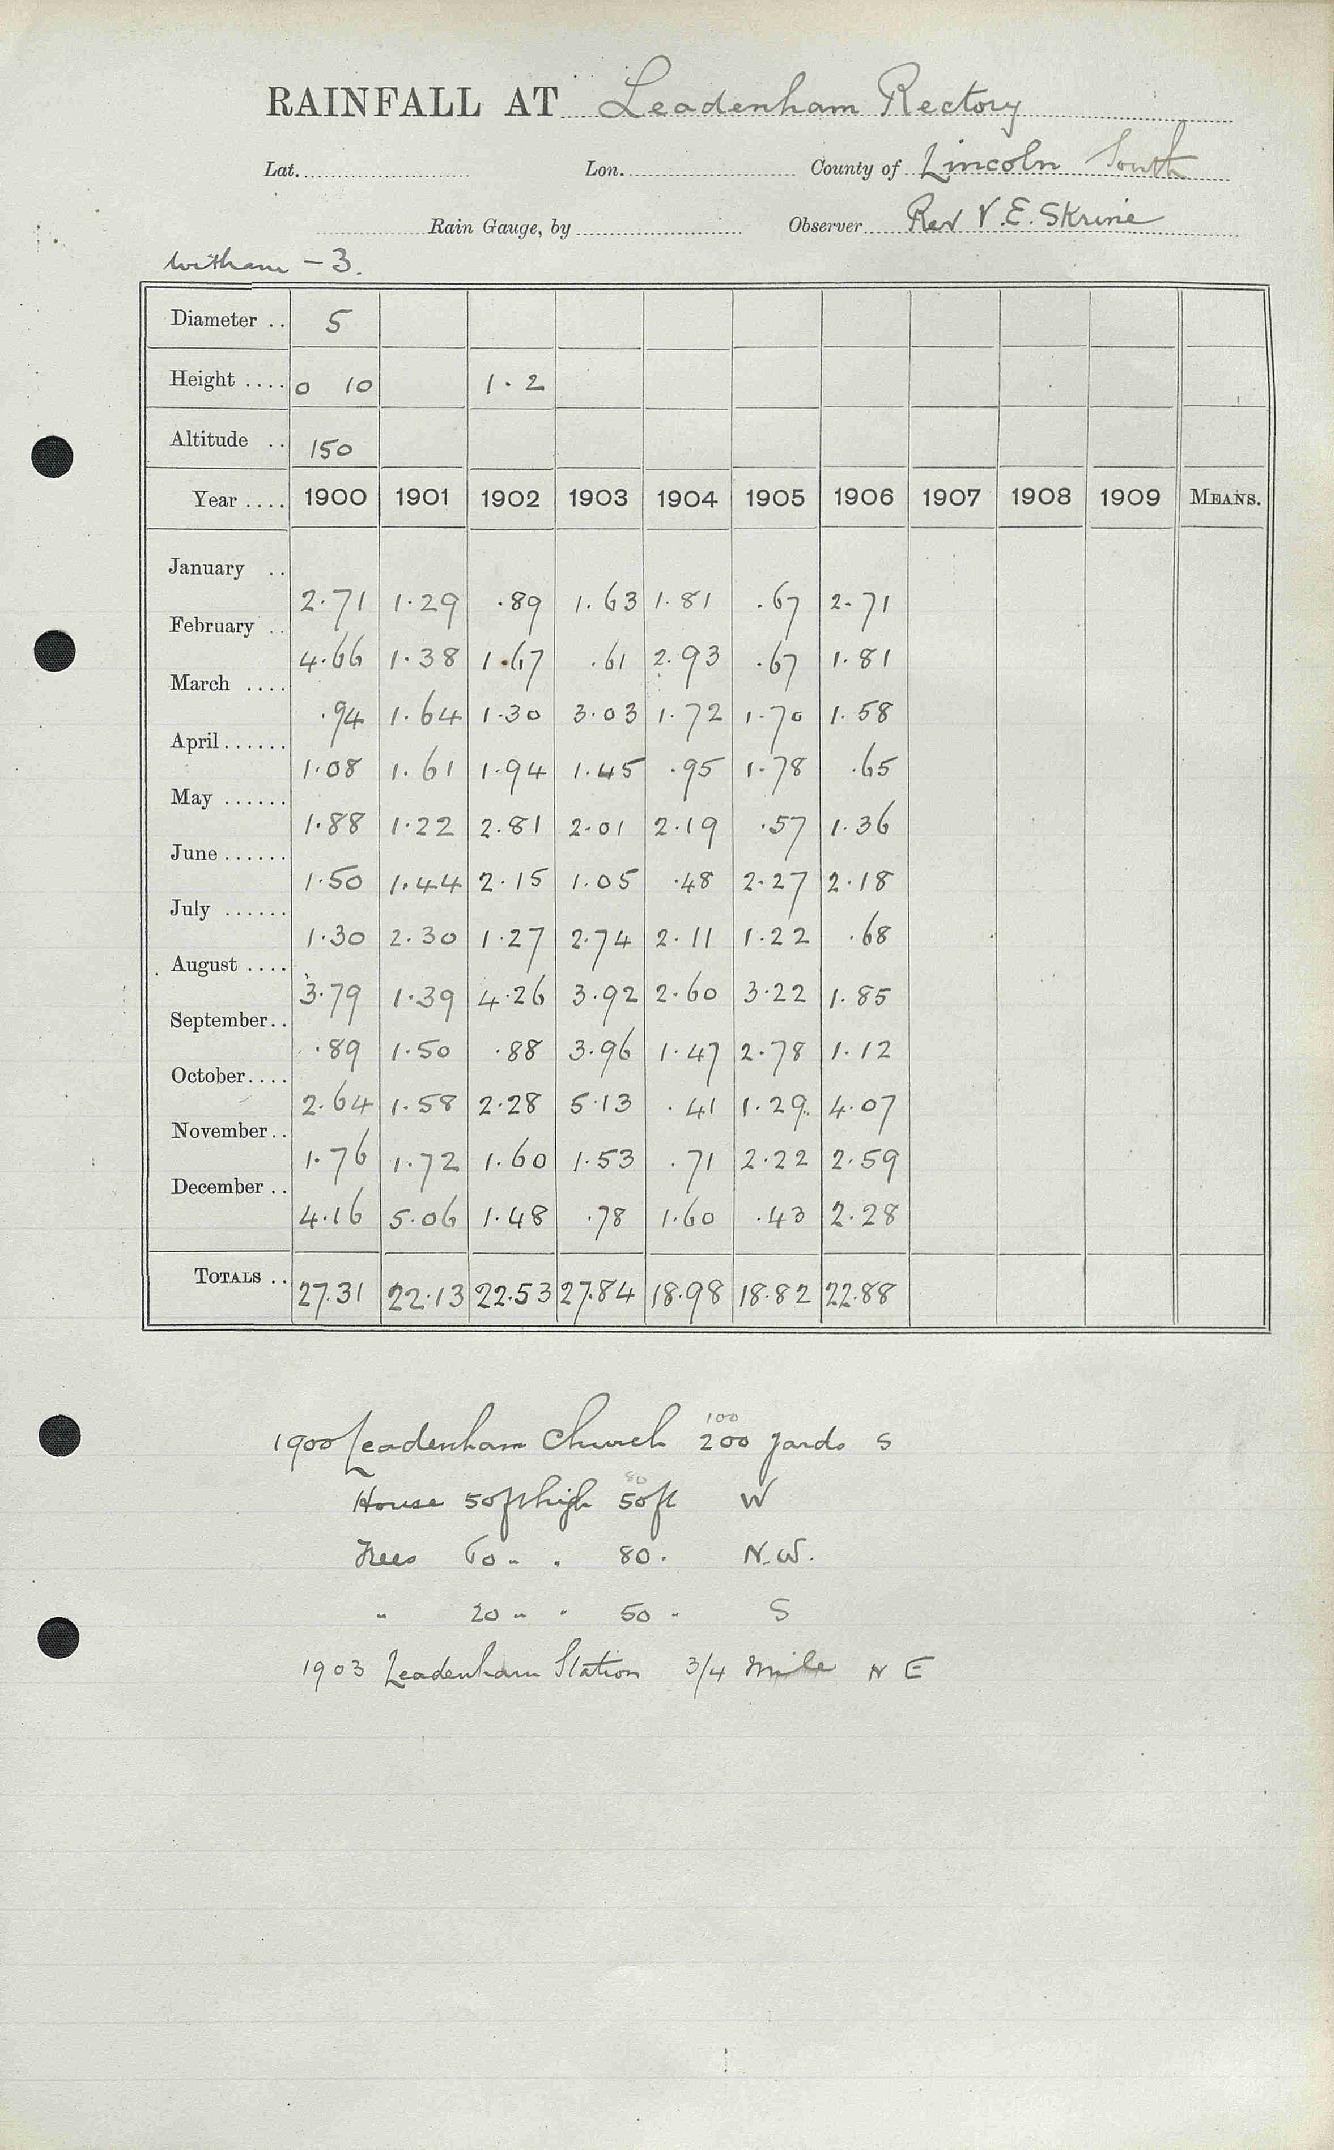 RAINFALL AT Leadenham Rectory
Lat. Lon. County of Lincoln South
Rain Gauge, by Observer Rev V. E. Skrine
Witham - 3.
Diameter .. 5
Height .... 0 10 1.2
Altitude .. 150
Year .... 1900 1901 1902 1903 1904 1905 1906 1907 1908 1909 MEANS.
January .. 2.71 1.29 .89 1.63 1.81 .67 2.71
February .. 4.66 1.38 1.67 .61 2.93 .67 1.81
March .... .94 1.64 1.30 3.03 1.72 1.70 1.58
April ...... 1.08 1.61 1.94 1.45 .95 1.78 .65
May ...... 1.88 1.22 2.81 2.01 2.19 .57 1.36
June ...... 1.50 1.44 2.15 1.05 .48 2.27 2.18
July ...... 1.30 2.30 1.27 2.74 2.11 1.22 .68
August .... 3.79 1.39 4.26 3.92 2.60 3.22 1.85
September.. .89 1.50 .88 3.96 1.47 2.78 1.12
October.... 2.64 1.58 2.28 5.13 .41 1.29 4.07
November.. 1.76 1.72 1.60 1.53 .71 2.22 2.59
December .. 4.16 5.06 1.48 .78 1.60 .43 2.28
TOTALS .. 27.31 22.13 22.53 27.84 18.98 18.82 22.88
100
1900 Leadenham Church 200 yards S
80
House 50ft high 50ft W
Trees 60 " . 80 . N.W.
" 20 " " 50 " S
1903 Leadenham Station 3/4 mile N E